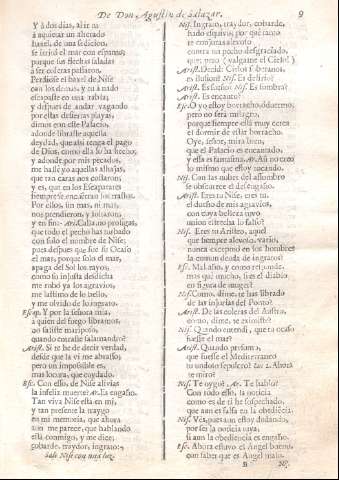 De Don Agustin de Salazar. 9
Y à dos dias, al ir tu
à aquietar un alterado
baxel, de una sedicion,
se sorviò el mar con espuma;
porque sus flechas saladas
à ser coleras passaron.
Perdiòse el baxel de Nise
con los demàs, y tu à nado
escapaste en una tabla;
y despues de andar vagando
por estas desiertas playas,
dimos con este Palacio,
adonde libraste aquella
deydad, que assi tenga el pago
de Dios, como ella lo ha hecho,
y adonde por mis pecados,
me hallè yo aquellas alhajas,
que tan caras nos costaron;
y es, que en los Escaparates
siempre se encierran los trastos.
Por ellos, sin mas, ni mas,
nos prendieron, y soltaron,
y en fin- Arist. Calla, no prosigas,
que todo el pecho has turbado
con solo el nombre de Nise;
pues despues que fue su Ocaso
el mar, porque solo el mar,
apaga del Sol los rayos,
como si injusta desdicha
me robò ya los agravios,
me lastimo de lo bello,
y me olvido de lo ingrato.
Esc. Y por la señora mia,
à quien del fuego libramos,
no saliste mariposo,
quando entraste salamandro?
Arist. Si te he de decir verdad,
desde que la vì me abraso,
pero un impossible es,
mas locura, que cuydado.
Esc. Con esso, de Nise alivias
la infeliz muerte? Ar. Es engaño.
Tan viva Nise està en mì,
y tan presente la traygo
en mi memoria, que ahora
aun me parece, que hablando
està conmigo, y me dice:
cobarde, traydor, ingrato:-
Sale Nise con una luz.
Nis. Ingrato, traydor, cobarde,
hado esquivo, por què tanto
te conjuras alevoso
contra un pecho desgraciado,
que; pero (valgame el Cielo!)
Arist. Decid: Cielos soberanos,
es ilusion? Nis. Es delirio?
Arist. Es sueño? Nis. Es sombra?
Arist. Es encanto?
Esc. O yo estoy borracho, ò duermo;
pero no serà milagro,
porque siempre està muy cerca
el dormir de estàr borracho.
Oye, señor, mira bien,
que el Palacio es encantado,
y esta es fantasma. Ar. Assi no creo
lo mismo que estoy tocando.
Nis. Con las nubes del assombro
se obscurece el desengaño.
Arist. Eres tu Nise, eres tu,
el dueño de mis agravios,
con cuya belleza tuvo
union estrecha lo falso?
Nis. Eres tu Aristeo, aquel
que siempre alevoso, vario,
nunca exceptuò en los hombres
la comun deuda de ingratos?
Esc. Malo stoy, y como responde,
mas què mucho, si es el diablo
en figura de muger?
Nis. Como, dime, te has librado
de las injurias del Ponto?
Arist. De las coleras del Austro,
como, dime, te eximiste?
Nis. Quando entendì, que tu ocaso
fuesse el mar?
Arist. Quando presumo,
que fuesse el Mediterraneo
tu undoso sepulcro? Los 2. Ahora
te miro?
Nis. Te oygo? Ar. Te hablo?
Con todo esso, la noticia
como es de ti he sospechado,
que aun es falsa en la obediencia.
Nis. Yo, que aun estoy dudando,
por ser la noticia tuya,
si aun la obediencia es engaño.
Esc. Ahora estuvo el Angel bueno,
con saber que es Angel malo.
B Nis.